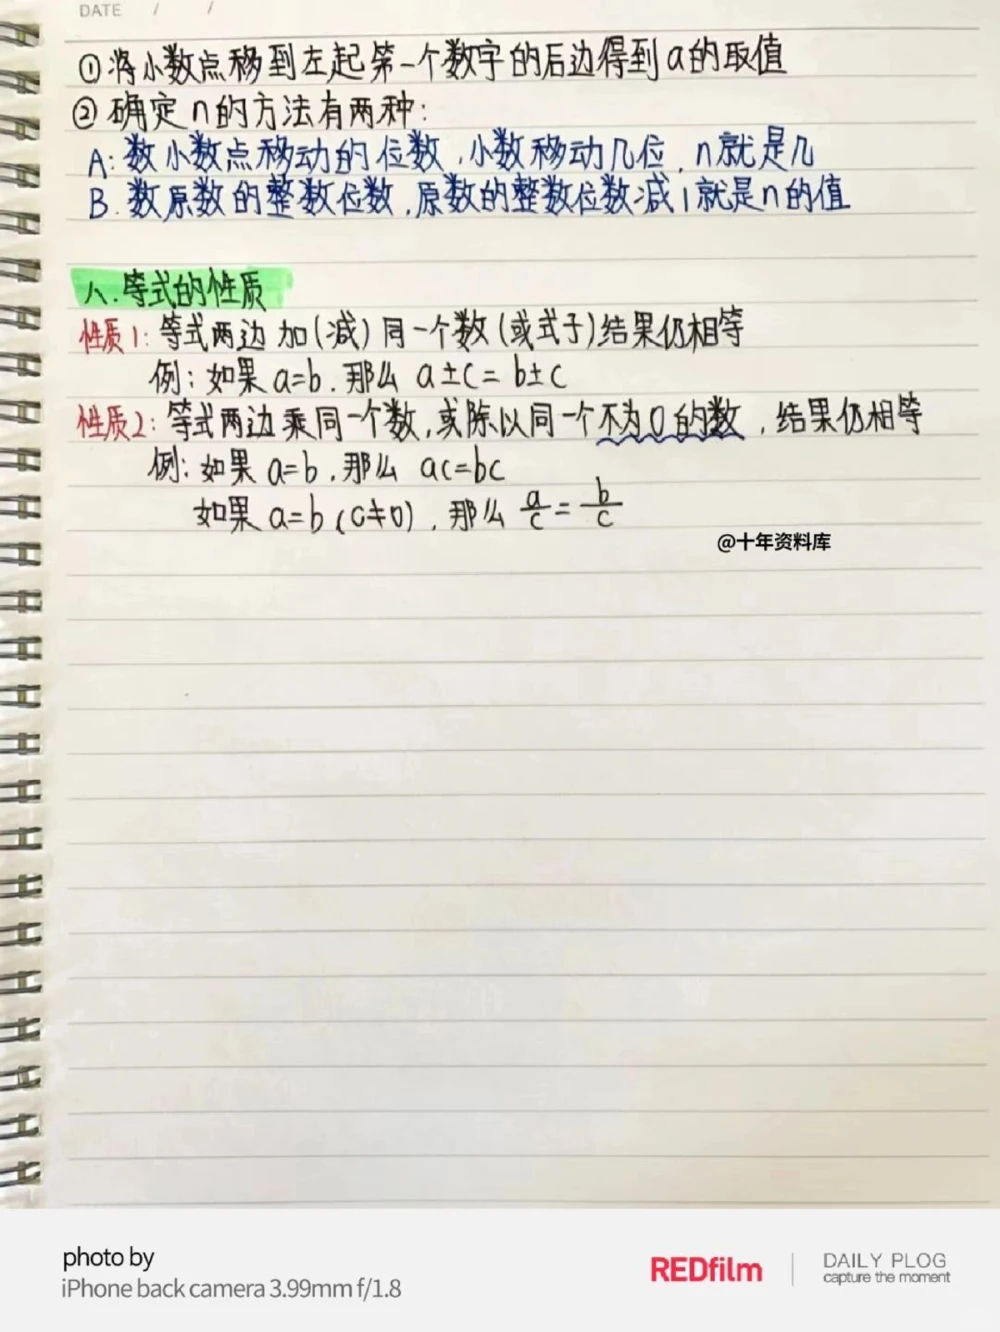 DATE / /
①将小数点移到左起第一个数字的后边得到a的取值
②确定n的方法有两种:
A:数小数点移动的位数,小数移动几位,n就是几
B.数原数的整数位数,原数的整数位数减1就是n的值
八.等式的性质
性质1:等式两边加(减)同一个数(或式子)结果仍相等
例:如果a=b.那么 a±c=b±c
性质2:等式两边乘同一个数,或除以同一个不为0的数,结果仍相等
例:如果a=b,那么 ac=bc
如果a=b(c≠0),那么 a/c=b/c
@十年资料库
photo by
iPhone back camera 3.99mm f/1.8
REDfilm
DAILY PLOG
capture the moment